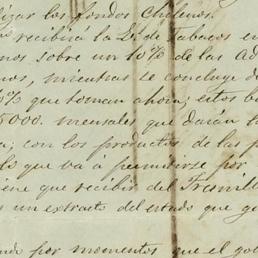 izar los fondos Chilenos.
recibirá la D.ª de Tabacos en
nos sobre un 10% de las Ad
nos, mientras se concluye d
% que toman ahora; estos b
5000. mensales que darán t
a; con los productos de las p
lo que vá á permitirse por
iene que recibir del Tremill
s un extracto del estado que g
ndo por momentos que el gob